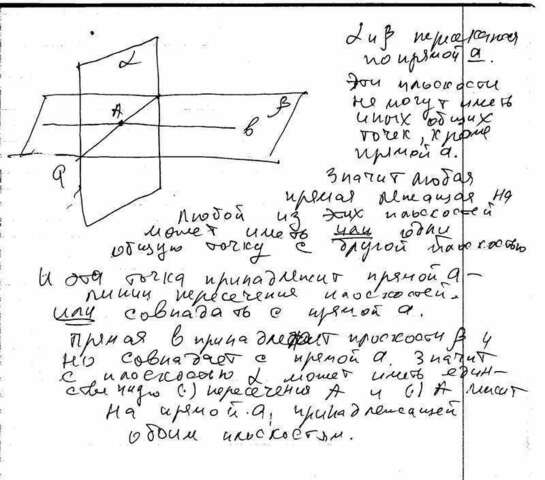 α
β
A
в
a
α и β пересекаются
по прямой a.
Эти плоскости
не могут иметь
иных общих
точек, кроме
прямой a.
Значит любая
прямая лежащая на
любой из этих плоскостей
может иметь или одну
общую точку с другой плоскостью
и эта точка принадлежит прямой a -
линии пересечения плоскостей.
или совпадать с прямой a.
Прямая в принадлежит плоскости β и
но совпадает с прямой a. Значит
с плоскостью α может иметь един-
ственную (·) пересечения A и (·) A лежит
на прямой a, принадлежащей
обоим плоскостям.